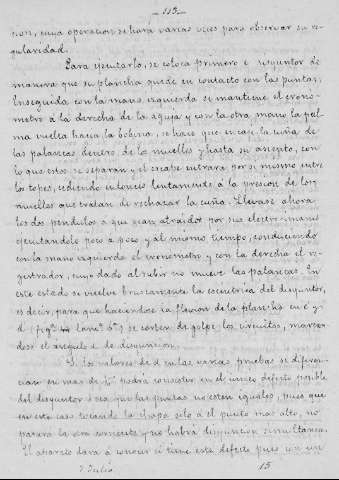 — 115 —
sor, cuya operacion se hará varias veces para observar su re-
gularidad.
Para ejecutarlo, se coloca primero el disyuntor de
manera que su plancha quede en contacto con las puntas;
Enseguida con la mano izquierda se mantiene el cronó-
metro á la derecha de la aguja y con la otra mano la pal-
ma vuelta hacia la bobina, se hace que encaje la cuña de
las palancas dentro de los muelles y hasta su asiento, con
lo que estos se separan y el escape entrará por si mismo entre
los topes, cediendo entonces lentamente á la presion de los
muelles que tratan de rechazar la cuña. Llevase ahora
los dos péndulos á que sean atraidos por sus electro-imanes
ejecutandolo poco á poco y al mismo tiempo, conduciendo
con la mano izquierda el cronometro y con la derecha el re-
gistrador, cuyo dado al subir no mueve las palancas. En
este estado se vuelve bruscamente la escuadra del disyuntor,
es decir, para que haciendose la flexion de la plancha en c y
d (fig. lam. 6ª) se corten de golpe los circuitos, marcan-
dose el angulo d de disyuncion.
Si los valores de d en las varias pruebas se diferen-
cian en mas de podrá consistir en el unico defecto posible
del disyuntor ó sea que las puntas no esten iguales, pues que
en este caso tocando la chapa solo á el punto mas alto, no
pasará la otra corriente y no habrá disyuncion simultanea.
El aparato dará á conocer si tiene este defecto pues con un
7 Julio 15